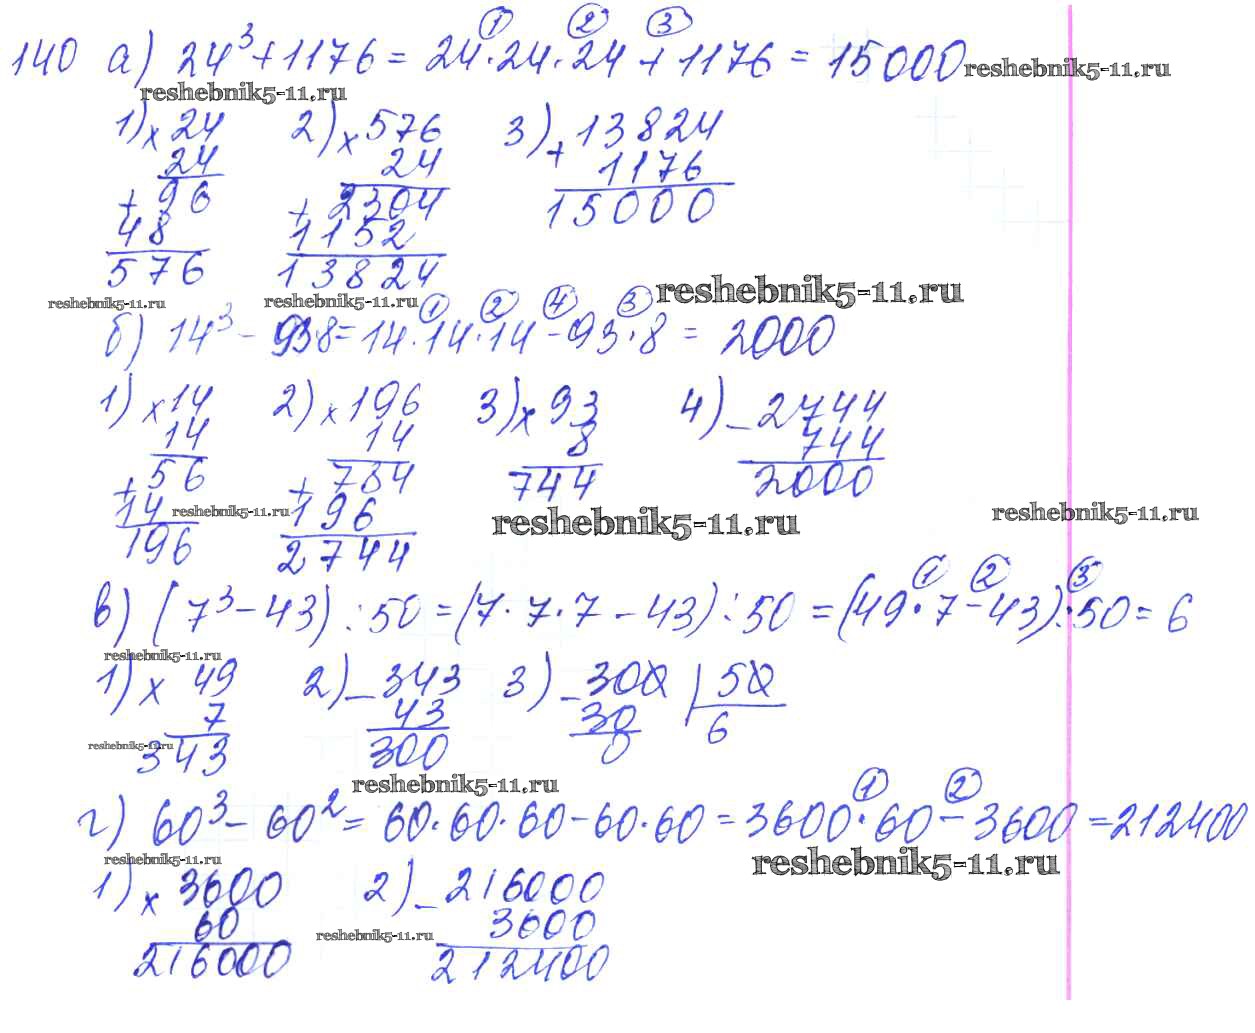 140 а) 24³ + 1176 = 24 · 24 · 24 + 1176 = 15000 reshebnik5-11.ru
① ② ③
reshebnik5-11.ru
1) × 24 2) × 576 3) + 13824
24 24 1176
+ 96 + 2304 15000
48 1152
576 13824
reshebnik5-11.ru reshebnik5-11.ru reshebnik5-11.ru
① ② ④ ③
б) 14³ - 93·8 = 14 · 14 · 14 - 93 · 8 = 2000
1) × 14 2) × 196 3) × 93 4) - 2744
14 14 8 744
+ 56 + 784 744 2000
14 196
reshebnik5-11.ru reshebnik5-11.ru reshebnik5-11.ru
196 2744
① ② ③
в) (7³ - 43) : 50 = (7 · 7 · 7 - 43) : 50 = (49 · 7 - 43) : 50 = 6
reshebnik5-11.ru
1) × 49 2) - 343 3) - 300 | 50
7 43 30 6
343 300 0
reshebnik5-11.ru
reshebnik5-11.ru
① ②
г) 60³ - 60² = 60 · 60 · 60 - 60 · 60 = 3600 · 60 - 3600 = 212400
reshebnik5-11.ru reshebnik5-11.ru
1) × 3600 2) - 216000
60 3600
reshebnik5-11.ru
216000 212400